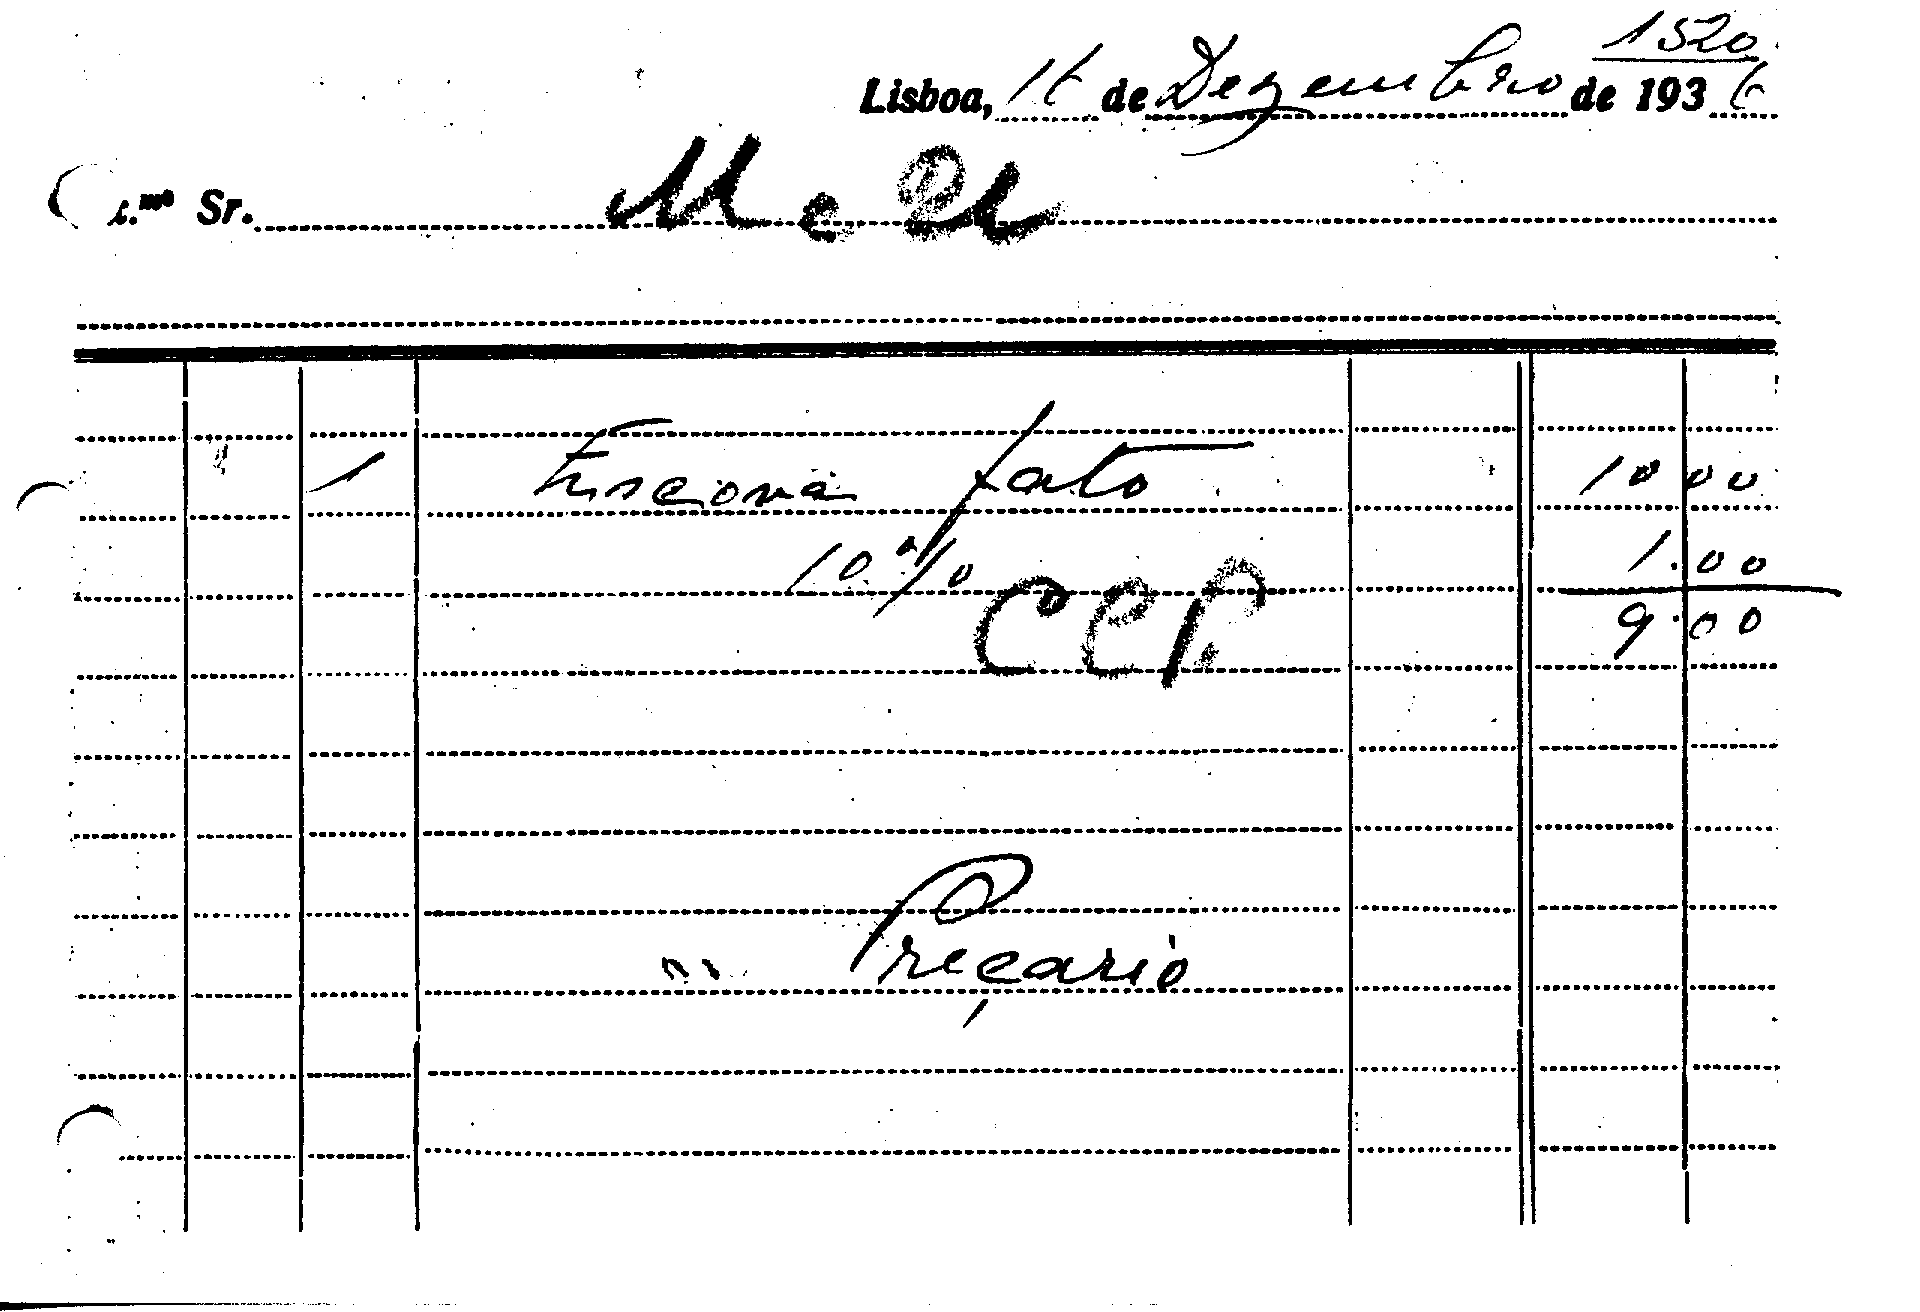 1520
Lisboa, 16 de Dezembro de 1936
Sr.
1 fato 10 00
10% 1.00
CCP.
9.00
Preçario